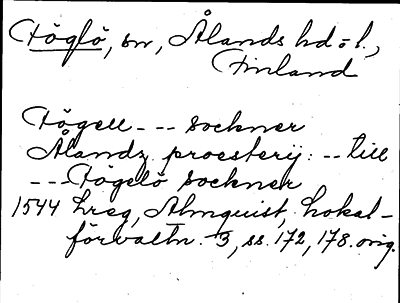 Föglö, sn, Ålands hd o. l.,
Finland
Fögell --- sockner
Ålandz proesterij: -- till
--- Fögelö sockner
1544 hreg, Almquist, Lokal-
förvaltn. 3, ss. 172, 178. orig.